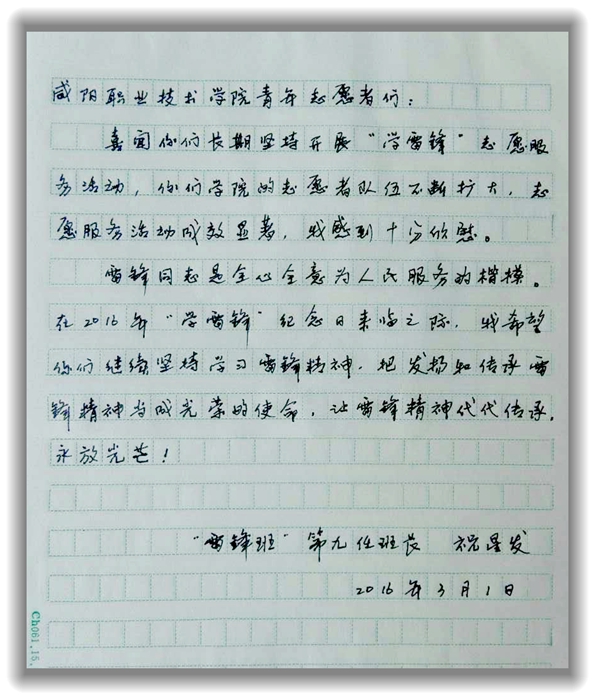 咸阳职业技术学院青年志愿者们：
喜闻你们长期坚持开展“学雷锋”志愿服
务活动，你们学院的志愿者队伍不断扩大，志
愿服务活动成效显著，我感到十分欣慰。
雷锋同志是全心全意为人民服务的楷模。
在2016年“学雷锋”纪念日来临之际，我希望
你们继续坚持学习雷锋精神，把发扬和传承雷
锋精神当成光荣的使命，让雷锋精神代代传承，
永放光芒！
“雷锋班”第九任班长 祝是发
2016年3月1日
Ch061.15.